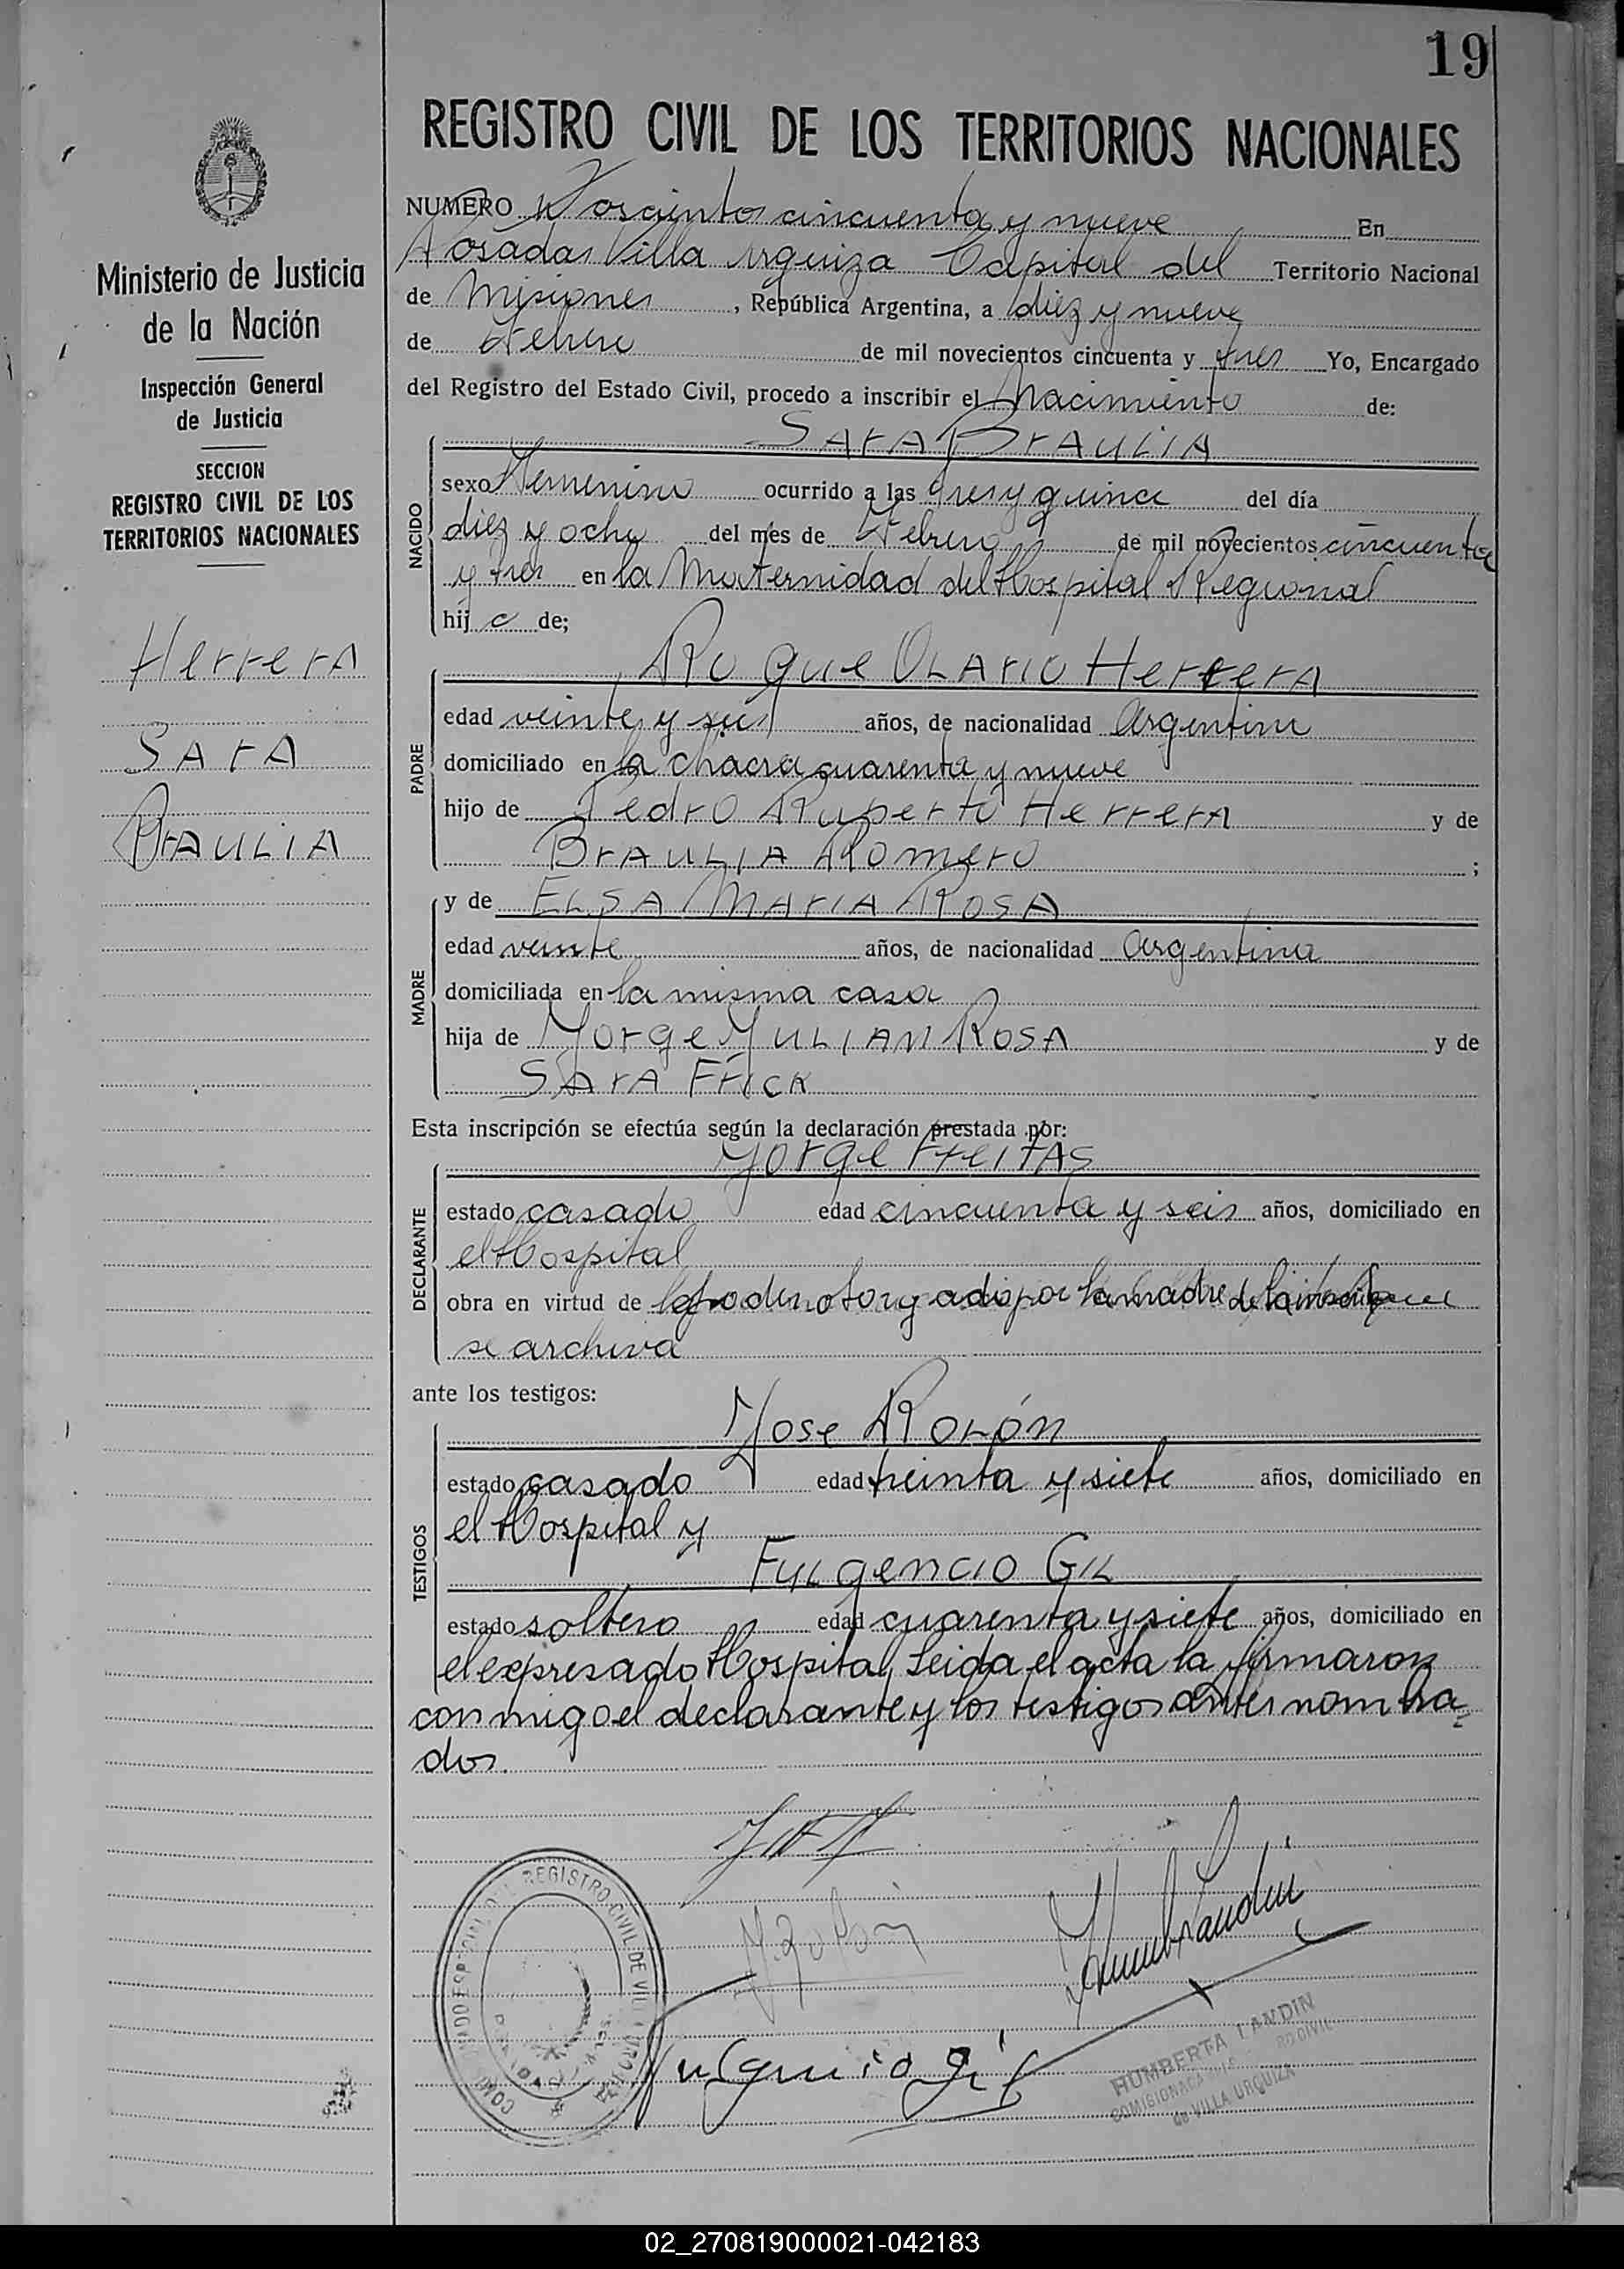 19
REGISTRO CIVIL DE LOS TERRITORIOS NACIONALES
Ministerio de Justicia
de la Nación
Inspección General
de Justicia
SECCION
REGISTRO CIVIL DE LOS
TERRITORIOS NACIONALES
Herrera
Sara
Braulia
NUMERO Doscientos cincuenta y nueve En
Posadas Villa Urquiza Capital del Territorio Nacional
de Misiones, República Argentina, a diez y nueve
de Febrero de mil novecientos cincuenta y tres Yo, Encargado
del Registro del Estado Civil, procedo a inscribir el Nacimiento de:
Sara Braulia
NACIDO
sexo Femenino ocurrido a las tres y quince del día
diez y ocho del mes de Febrero de mil novecientos cincuenta
y tres en la Maternidad del Hospital Regional
hij a de;
PADRE
Roque Olario Herrera
edad veinte y seis años, de nacionalidad Argentino
domiciliado en la chacra cuarenta y nueve
hijo de Pedro Ruperto Herrera y de
Braulia Romero ;
MADRE
y de Elsa Maria Rosa
edad veinte años, de nacionalidad Argentina
domiciliada en la misma casa
hija de Jorge Julian Rosa y de
Sara Frick
Esta inscripción se efectúa según la declaración prestada por:
DECLARANTE
Jorge Freitas
estado casado edad cincuenta y seis años, domiciliado en
el Hospital
obra en virtud de por la madre de la que
se archiva
ante los testigos:
TESTIGOS
Jose Rolón
estado casado edad treinta y siete años, domiciliado en
el Hospital y
Fulgencio Gil
estado soltero edad cuarenta y siete años, domiciliado en
el expresado Hospital, Leida el acta la firmaron
conmigo el declarante y los testigos antes nombra-
dos.
J. Rolon
Fulgencio Gil
REGISTRO CIVIL DE VILLA URQUIZA
HUMBERTA LANDIN
de VILLA URQUIZA
02_270819000021-042183